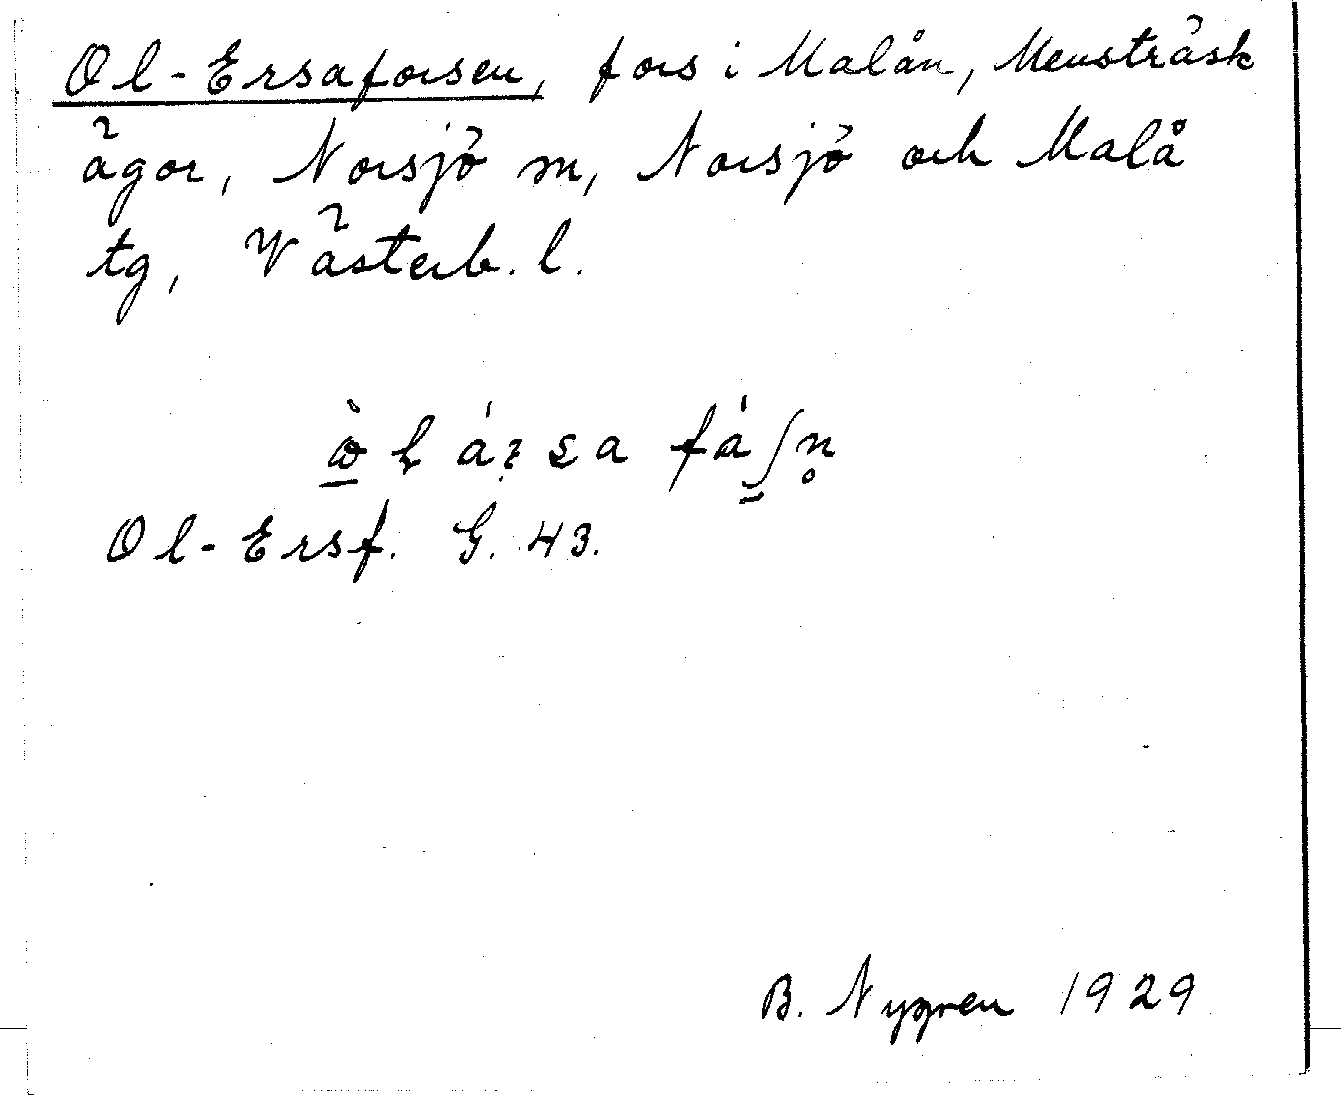 Ol-Ersaforsen, fors i Malån, Mensträsk
ägor, Norsjö sn, Norsjö och Malå
tg, Västerb. l.
Ol-Ersf. G. 43.
B. Nygren 1929